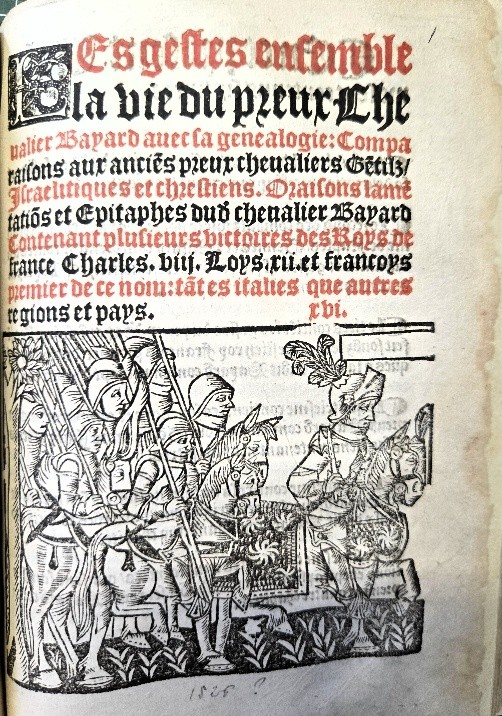 LEs gestes ensemble
la vie du preux Che
ualier Bayard auec sa genealogie: Compa
raisons aux anciẽs preux cheualiers Gẽtilz/
Israelitiques et chrestiens. Oraisons lamẽ
tatiõs et Epitaphes dud' cheualier Bayard
Contenant plusieurs victoires des Roys de
france Charles. viij. Loys. xii. et francoys
premier de ce nom: tãt es italies que autres
regions et pays. xvi.
1526 ?